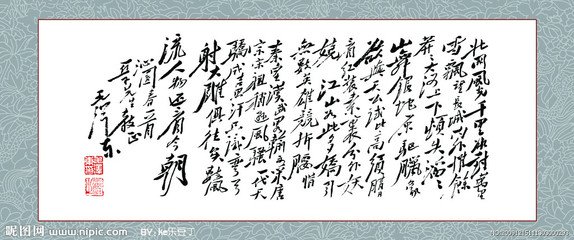 北国风光千里冰封万里
雪飘望长城内外惟馀
莽莽大河上下顿失滔滔
山舞银蛇原驰腊象
欲与天公试比高须晴日
看红装素裹分外妖
娆江山如此多娇引
无数英雄竞折腰惜
秦皇汉武略输文采唐
宗宋祖稍逊风骚一代天
骄成吉思汗只识弯弓
射大雕俱往矣数风
流人物还看今朝
沁园春一首
先生教正
毛泽东
昵图网 www.nipic.com BY: ke乐豆丁